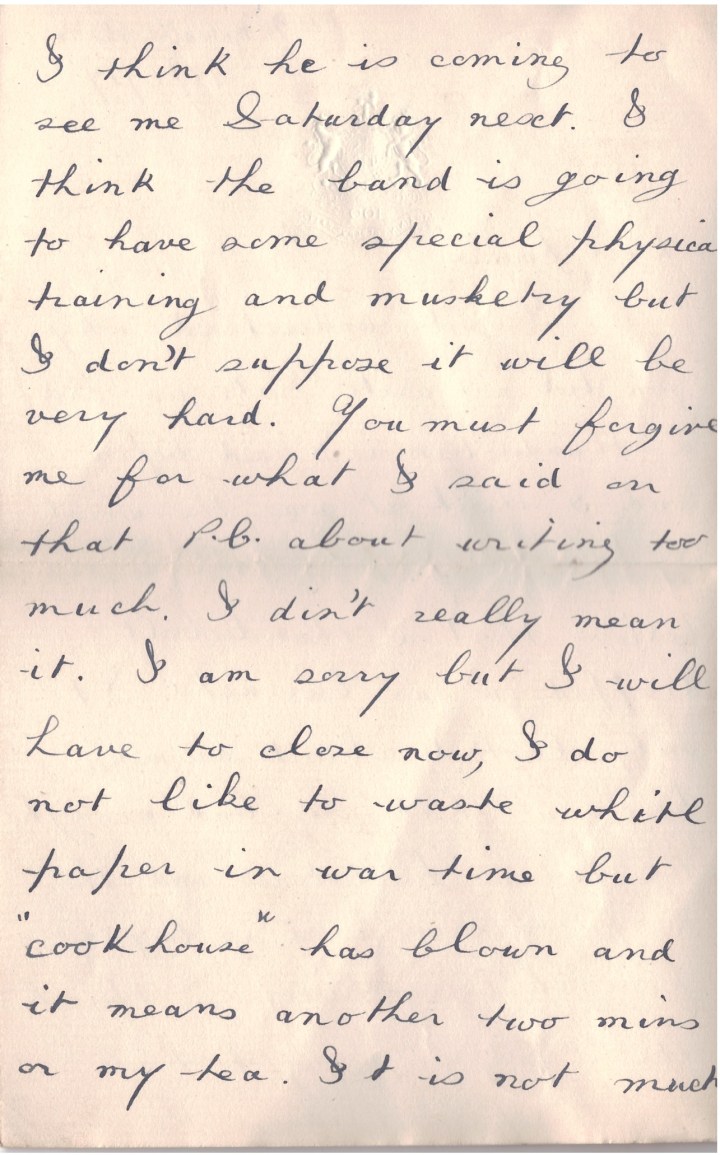 I think he is coming to
see me Saturday next. I
think the band is going
to have some special physica
training and musketry but
I don't suppose it will be
very hard. You must forgive
me for what I said on
that P.C. about writing too
much. I din't really mean
it. I am sorry but I will
have to close now, I do
not like to waste white
paper in war time but
"cook house" has blown and
it means another two mins
or my tea. It is not much